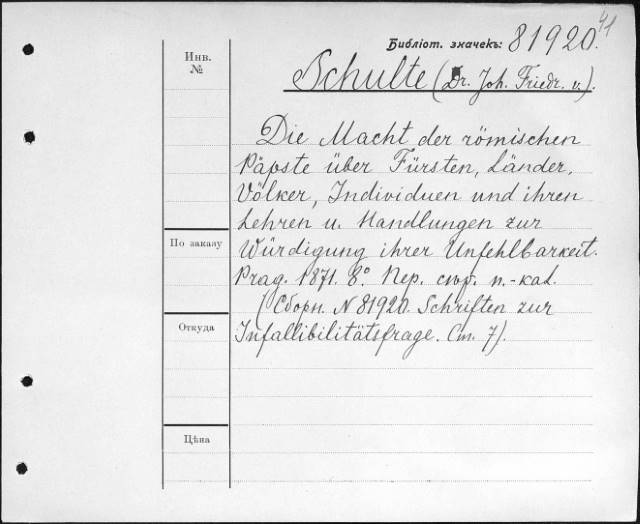 41
Библіот. значекъ: 81920.
Инв.
№
Schulte (Dr. Joh. Friedr. v.).
Die Macht der römischen
Päpste über Fürsten, Länder,
Völker, Individuen und ihren
Lehren u. Handlungen zur
По заказу
Würdigung ihrer Unfehlbarkeit.
Prag. 1871. 8° Пер. стр. п.-каl.
(Сборн. N 81920. Schriften zur
Откуда
Infallibilitätsfrage. Ст. 7).
Цѣна